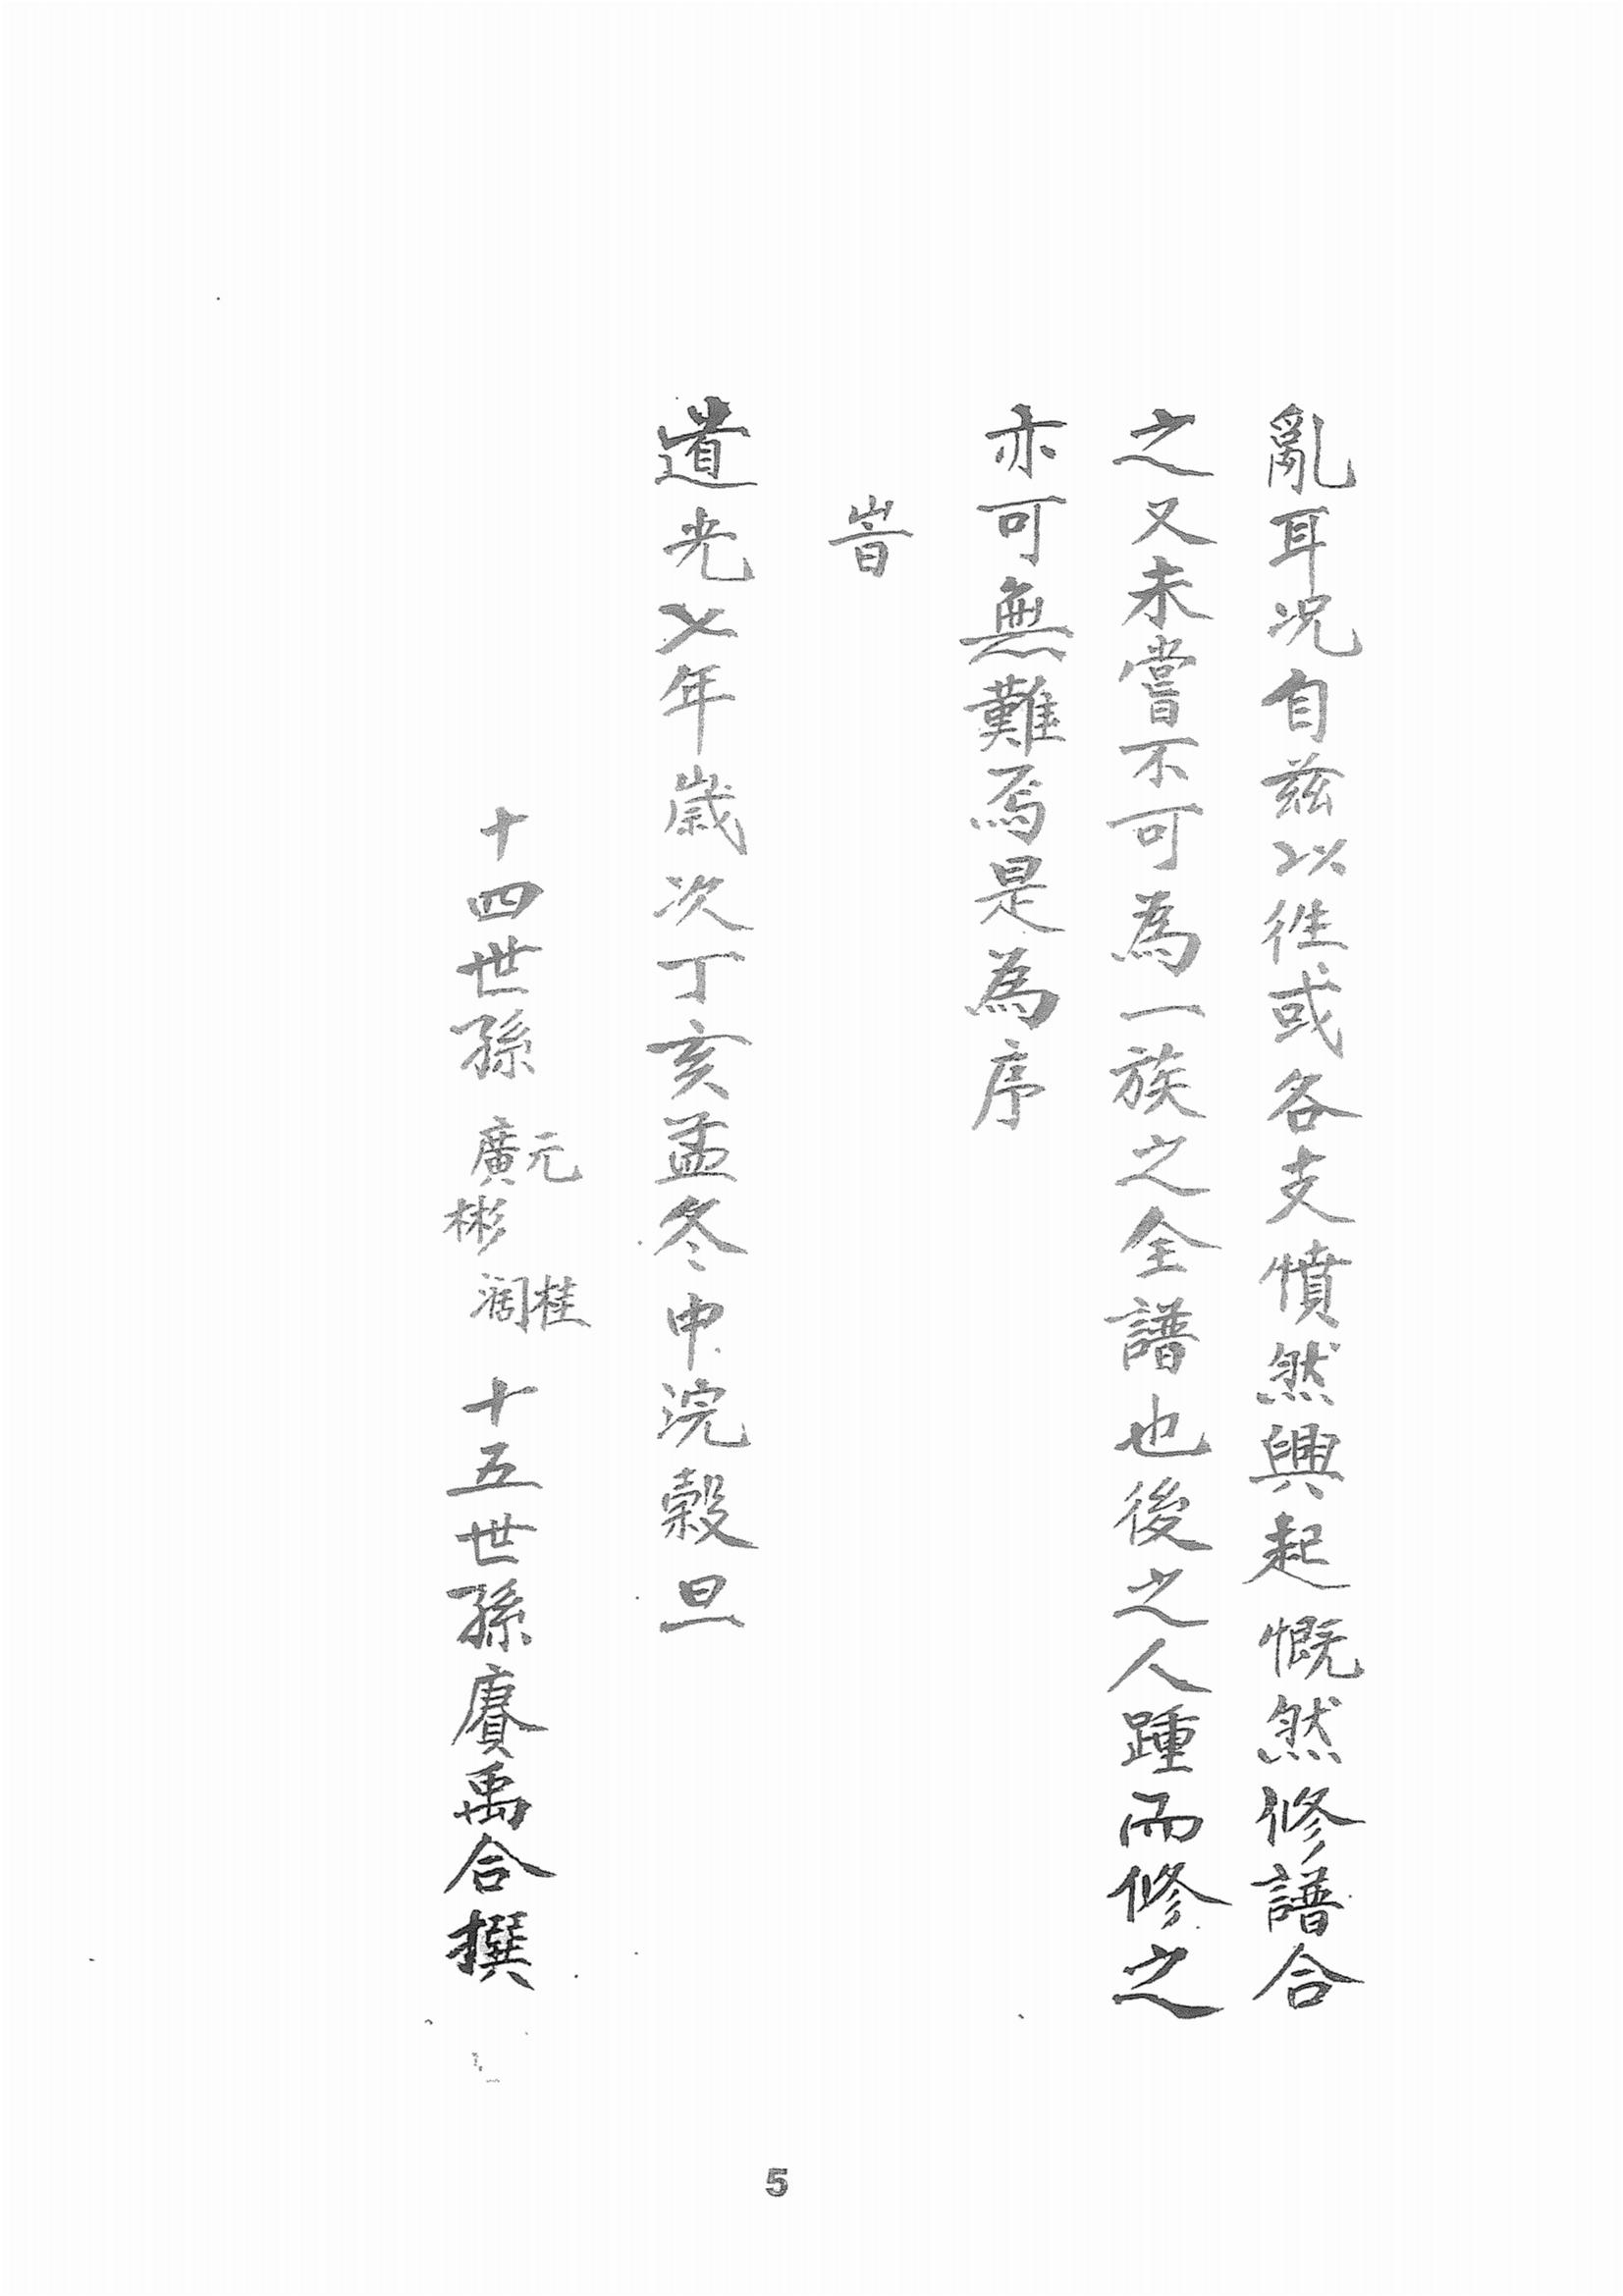 亂耳況自兹以徃或各支憤然興起慨然修譜合
之又未嘗不可為一族之全譜也後之人踵而修之
亦可無難焉是為序
旹
道光乂年歲次丁亥孟冬申浣穀旦
十四世孫 元廣彬 桂澗 十五世孫賡禹合撰
5